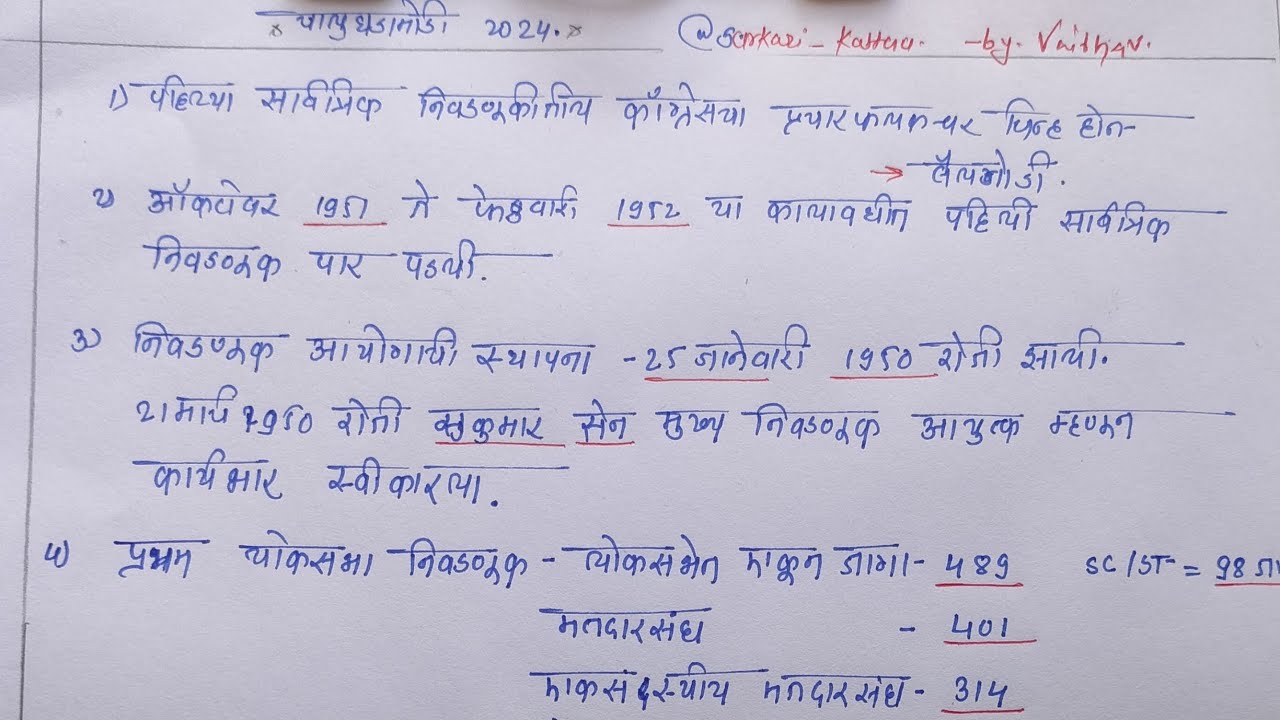 * चालु घडामोडी 2024. *
@Sarkari_Kattaa. -by. Vaibhav.
1) पहिल्या सार्वत्रिक निवडणूकीतील काँग्रेसचा प्रचारफलकवर चिन्ह होत-
→ बैलजोडी.
2) ऑक्टोबर 1951 ते फेब्रुवारी 1952 या कालावधीत पहिली सार्वत्रिक
निवडणूक पार पडली.
3) निवडणूक आयोगाची स्थापना - 25 जानेवारी 1950 रोजी झाली.
21 मार्च 1950 रोजी सुकुमार सेन मुख्य निवडणूक आयुक्त म्हणून
कार्यभार स्वीकारला.
4) प्रथम लोकसभा निवडणूक - लोकसभेत एकून जागा - 489 SC/ST = 98
मतदारसंघ - 401
एकसदस्यीय मतदारसंघ - 314